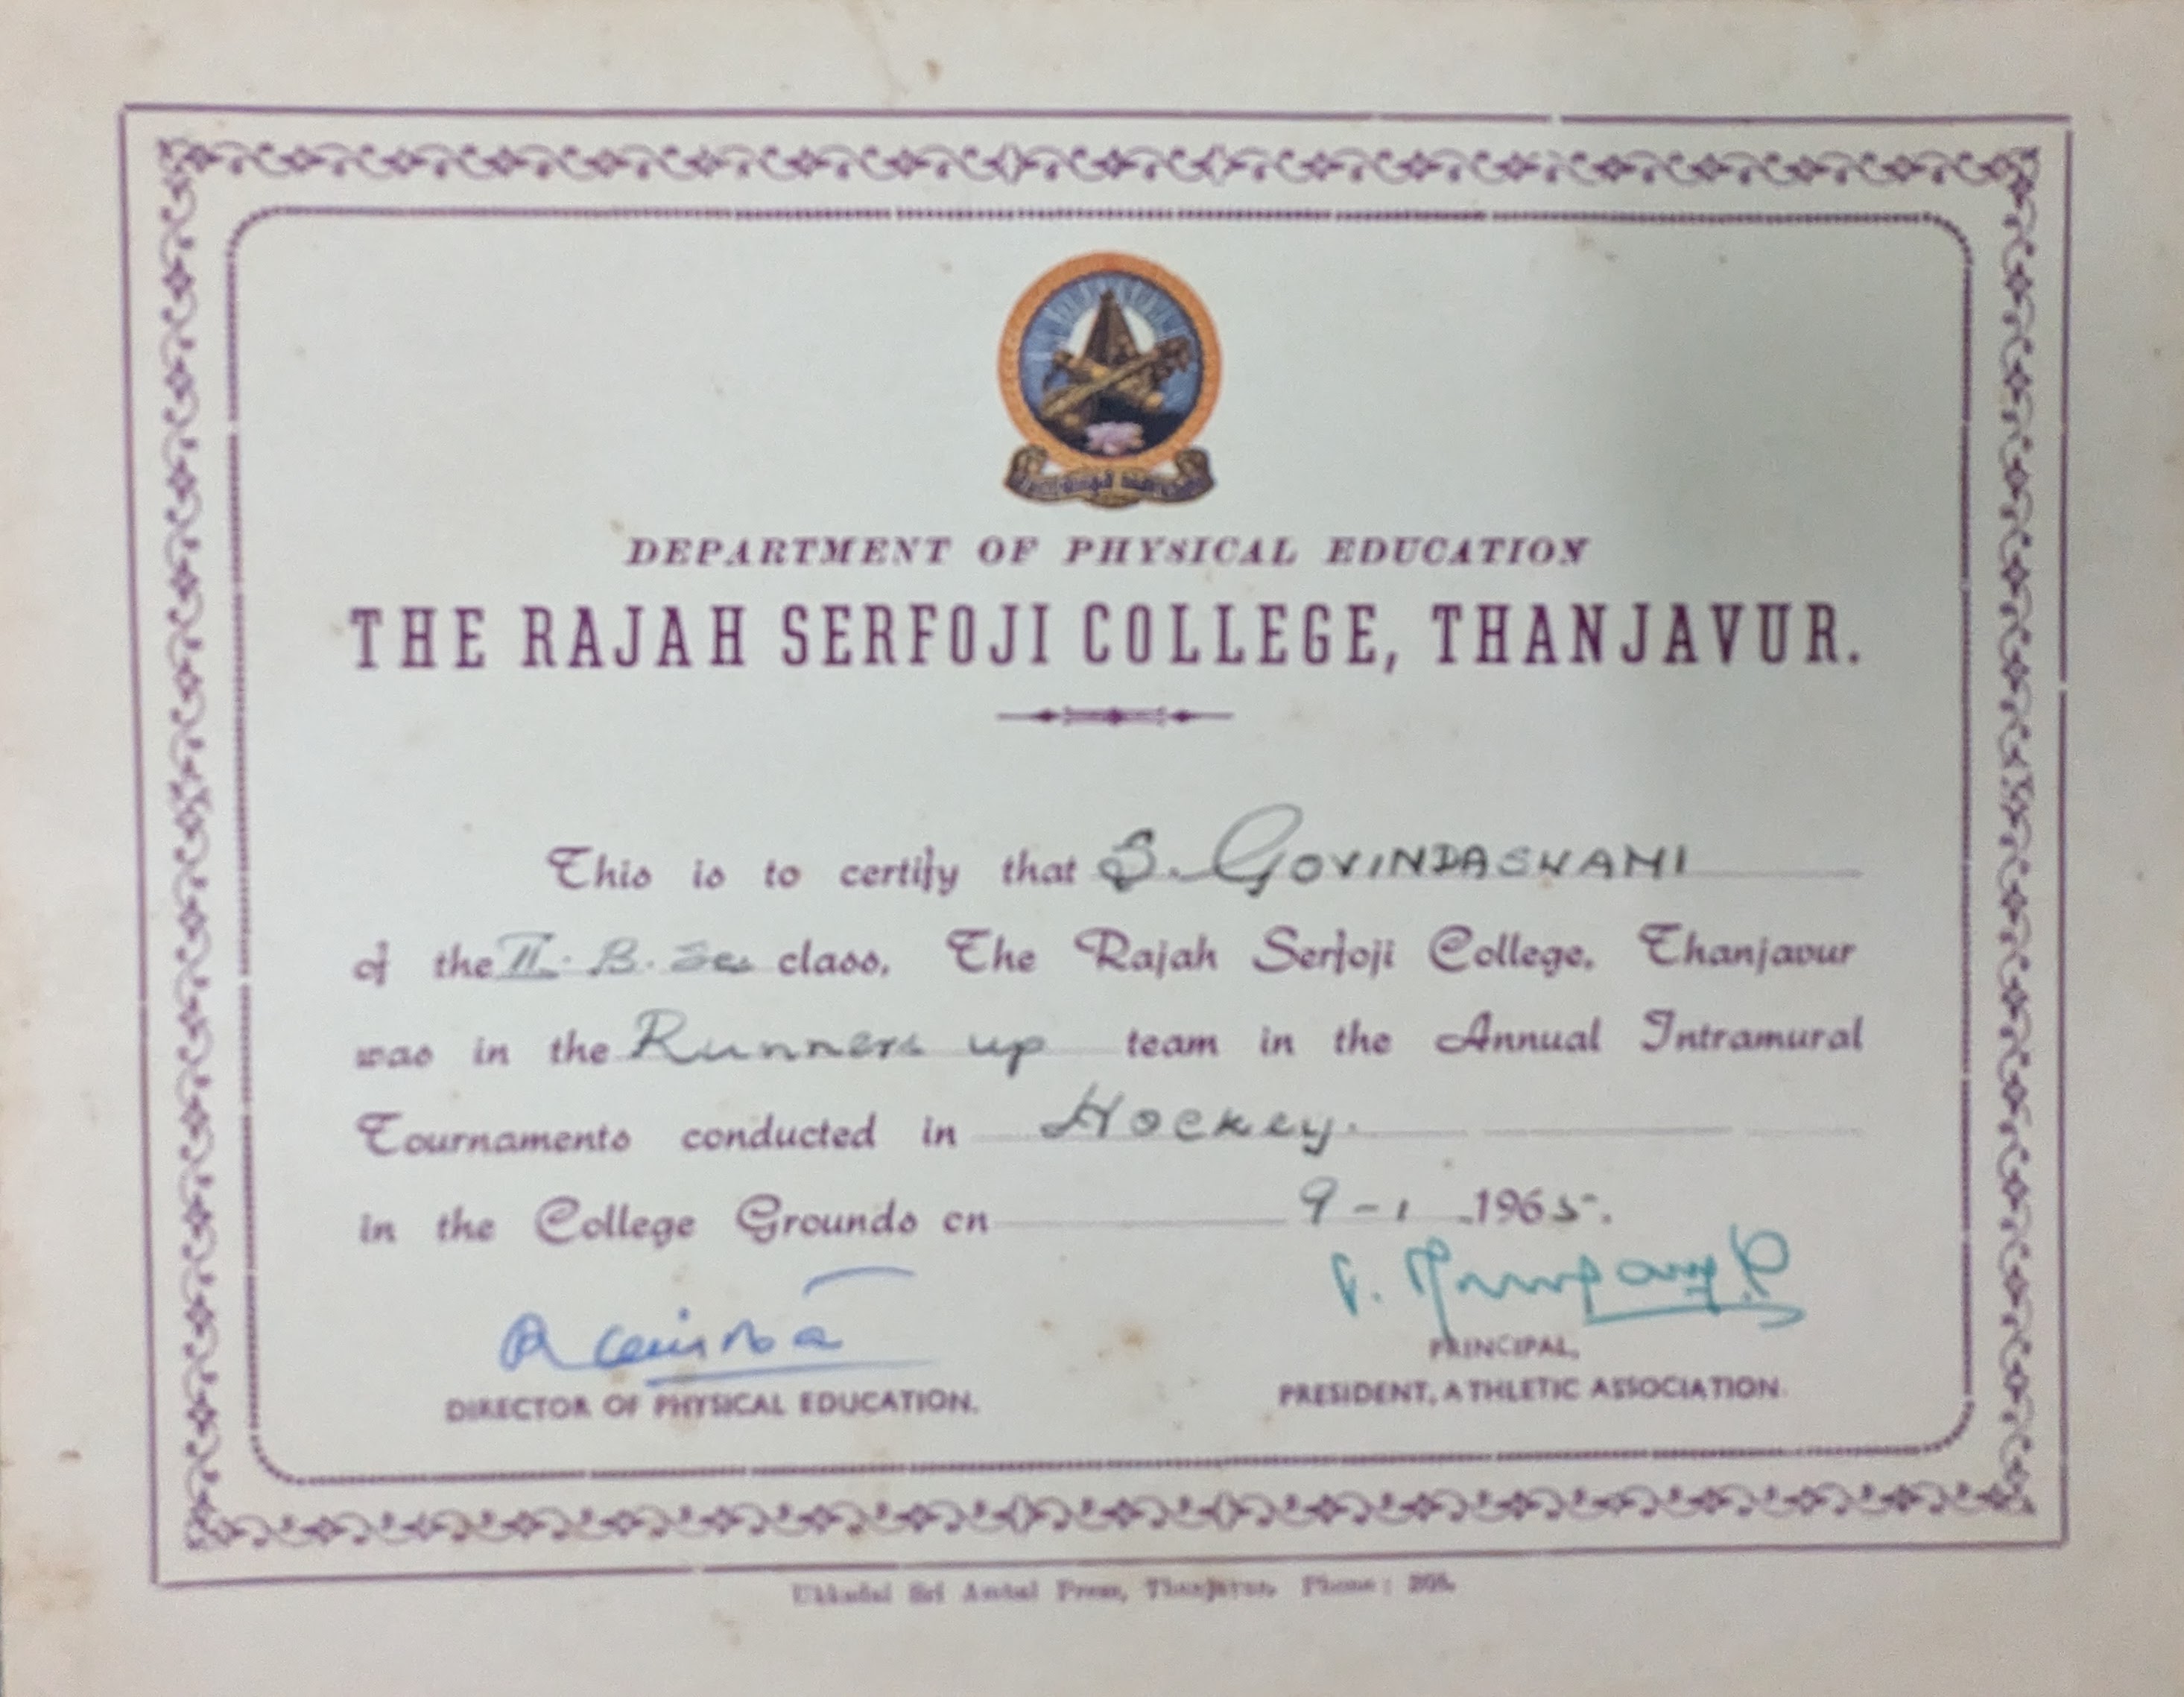 DEPARTMENT OF PHYSICAL EDUCATION
THE RAJAH SERFOJI COLLEGE, THANJAVUR.
This is to certify that S. GOVINDASWAMI
of the II. B. Sc. class, The Rajah Serfoji College, Thanjavur
was in the Runners up team in the Annual Intramural
Tournaments conducted in Hockey.
in the College Grounds on 9-1 1965.
PRINCIPAL,
DIRECTOR OF PHYSICAL EDUCATION. PRESIDENT, ATHLETIC ASSOCIATION.
Sri Ambal Press, Thanjavur. Phone: